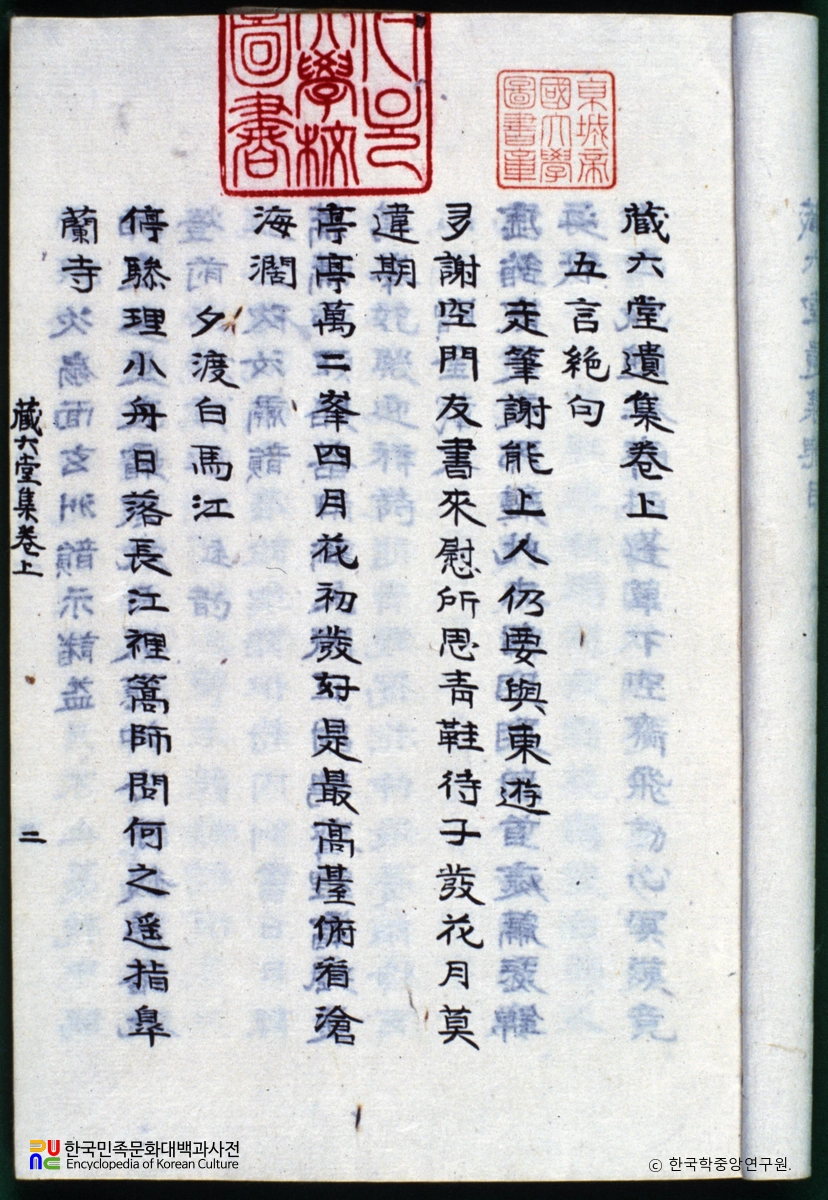 藏六堂遺集卷上
五言絶句
走筆謝能上人仍要與東遊
多謝空門友書來慰所思青鞋待子發花月莫
違期
亭亭萬二峯四月花初發好是最高臺俯看滄
海濶
夕渡白馬江
停驂理小舟日落長江裡篙師問何之遥指臯
蘭寺
藏六堂集卷上
二
京城帝
國大學
圖書章
大學校
圖書
한국민족문화대백과사전
Encyclopedia of Korean Culture
© 한국학중앙연구원.